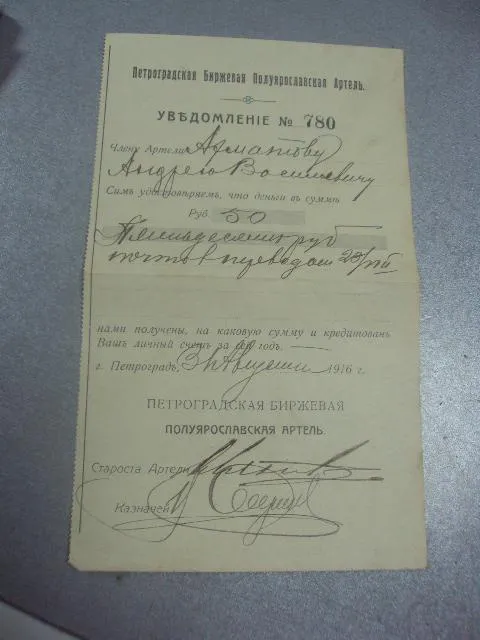 Петроградская Биржевая Полуярославская Артель.
УВѢДОМЛЕНІЕ № 780
Члену Артели Ахматову
Андрею Васильевичу
Симъ удостовѣряемъ, что деньги въ суммѣ
Руб. 50
Пятьдесятъ руб
почтов переводом 28/VII
нами получены, на каковую сумму и кредитованъ
Вашъ личный счетъ за сей годъ.
г. Петроградъ, Августа 1916 г.
ПЕТРОГРАДСКАЯ БИРЖЕВАЯ
ПОЛУЯРОСЛАВСКАЯ АРТЕЛЬ.
Староста Артели
Казначей